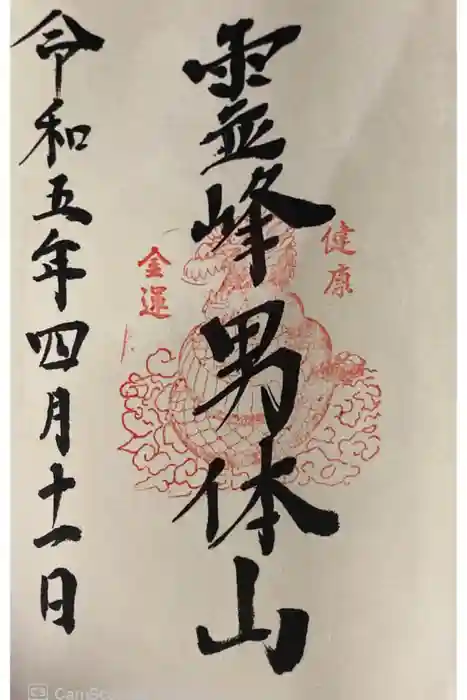 霊峰男体山
健康
金運
令和五年四月十一日
CamSc